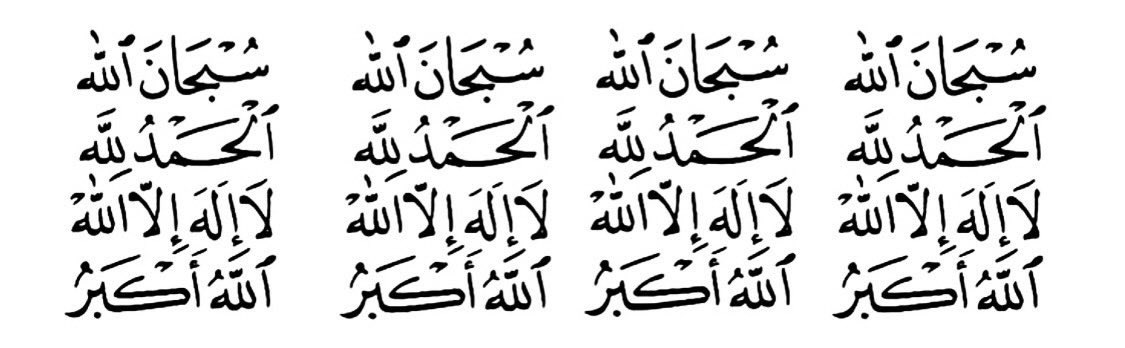 سُبْحَانَ ٱللَّٰه سُبْحَانَ ٱللَّٰه سُبْحَانَ ٱللَّٰه سُبْحَانَ ٱللَّٰه
ٱلْحَمْدُ لِلَّه ٱلْحَمْدُ لِلَّه ٱلْحَمْدُ لِلَّه ٱلْحَمْدُ لِلَّه
لَا إِلَٰهَ إِلَّا اللَّٰهْ لَا إِلَٰهَ إِلَّا اللَّٰهْ لَا إِلَٰهَ إِلَّا اللَّٰهْ لَا إِلَٰهَ إِلَّا اللَّٰهْ
ٱللَّهُ أَكْبَرُ ٱللَّهُ أَكْبَرُ ٱللَّهُ أَكْبَرُ ٱللَّهُ أَكْبَرُ